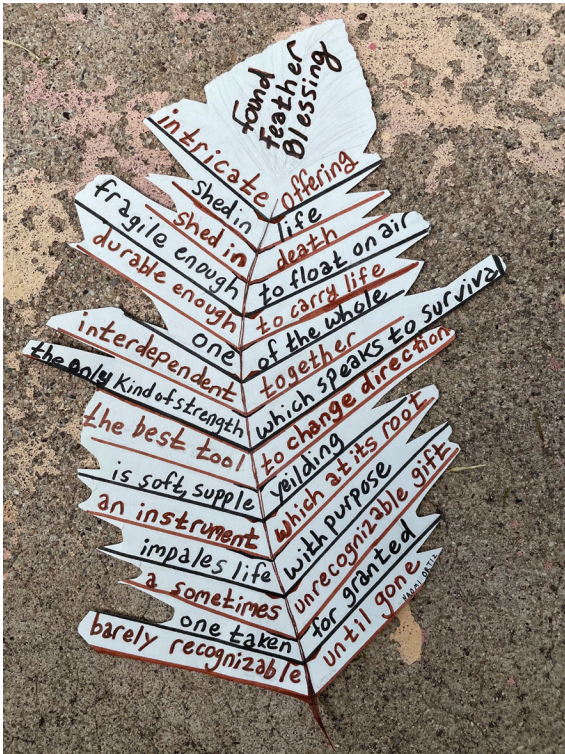 Found
Feather
Blessing
intricate offering
shed in life
shed in death
fragile enough to float on air
durable enough to carry life
one of the whole
interdependent together
the only kind of strength which speaks to survival
the best tool to change direction
is soft, supple yeilding
an instrument which at its root
impales life with purpose
a sometimes unrecognizable gift
one taken for granted
barely recognizable until gone
NAOMI ORTIZ